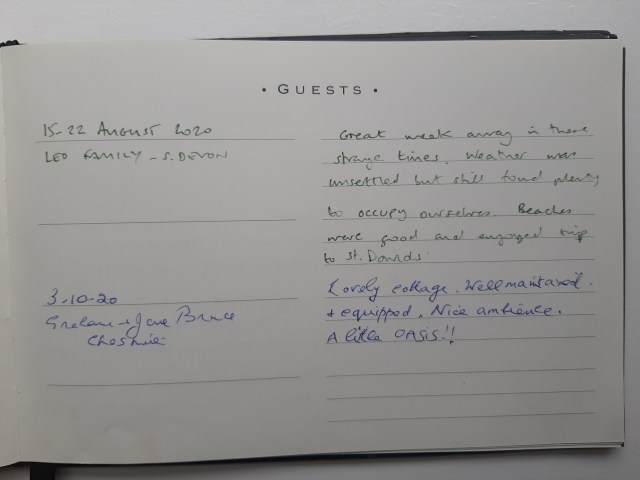 • GUESTS •
15-22 AUGUST 2020
LEO FAMILY - S. DEVON
Great week away in these
strange times. Weather was
unsettled but still found plenty
to occupy ourselves. Beaches
were good and enjoyed trip
to St. Davids.
3.10-20
Graham + Jane Bruce
Cheshire
Lovely cottage. Well maintained.
+ equipped. Nice ambience.
A little OASIS!!